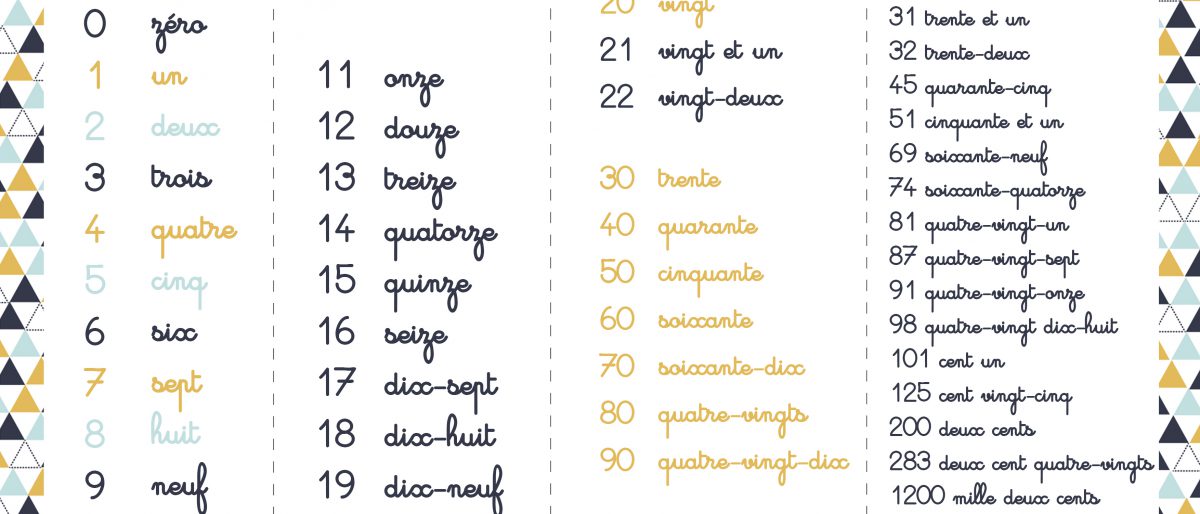 0 zéro
1 un
2 deux
3 trois
4 quatre
5 cinq
6 six
7 sept
8 huit
9 neuf
11 onze
12 douze
13 treize
14 quatorze
15 quinze
16 seize
17 dix-sept
18 dix-huit
19 dix-neuf
20 vingt
21 vingt et un
22 vingt-deux
30 trente
40 quarante
50 cinquante
60 soixante
70 soixante-dix
80 quatre-vingts
90 quatre-vingt-dix
31 trente et un
32 trente-deux
45 quarante-cinq
51 cinquante et un
69 soixante-neuf
74 soixante-quatorze
81 quatre-vingt-un
87 quatre-vingt-sept
91 quatre-vingt-onze
98 quatre-vingt dix-huit
101 cent un
125 cent vingt-cinq
200 deux cents
283 deux cent quatre-vingts
1200 mille deux cents